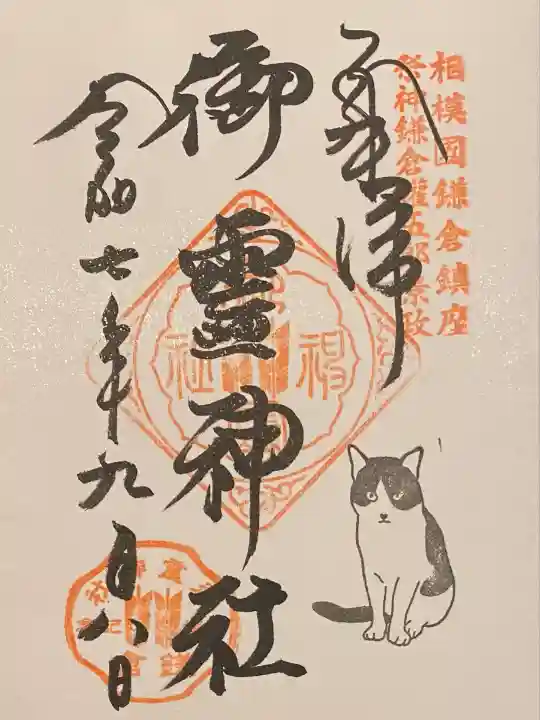 相模國鎌倉鎮座
祭神鎌倉權五郎景政
奉拝
御霊神社
令和七年九月八日